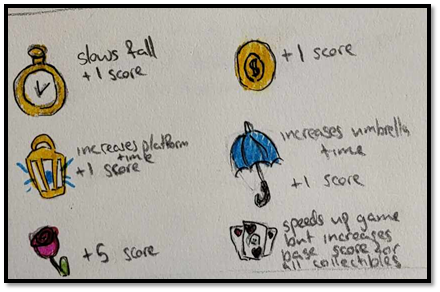 slows fall
+1 score
$
+1 score
increases platform
time
+1 score
increases umbrella
time
+1 score
+5 score
speeds up game
but increases
base score for
all collectibles